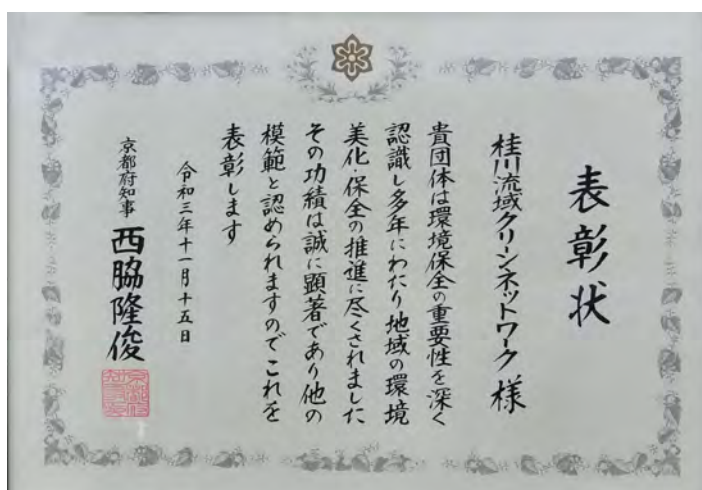 表彰状
桂川流域クリーンネットワーク 様
貴団体は環境保全の重要性を深く
認識し多年にわたり地域の環境
美化・保全の推進に尽くされました
その功績は誠に顕著であり他の
模範と認められますのでこれを
表彰します
令和三年十一月十五日
京都府知事 西脇隆俊